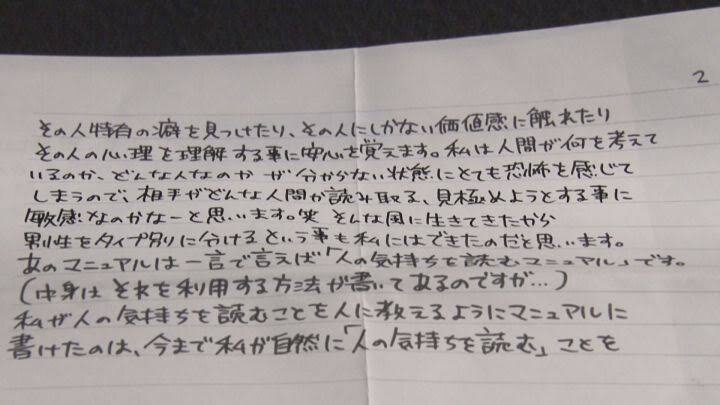 2
その人特有の癖を見つけたり、その人にしかない価値感に触れたり
その人の心理を理解する事に安心を覚えます。私は人間が何を考えて
いるのか、どんな人なのかが分からない状態にとても恐怖を感じて
しまうので、相手がどんな人間か読み取る、見極めようとする事に
敏感なのかなーと思います。笑 そんな風に生きてきたから
男性をタイプ別りに分けるという事も私にはできたのだと思います。
あのマニュアルは一言で言えば「人の気持ちを読むマニュアル」です。
(中身はそれを利用する方法が書いてあるのですが…)
私が人の気持ちを読むことを人に教えるようにマニュアルに
書けたのは、今まで私が自然に「人の気持ちを読む」ことを